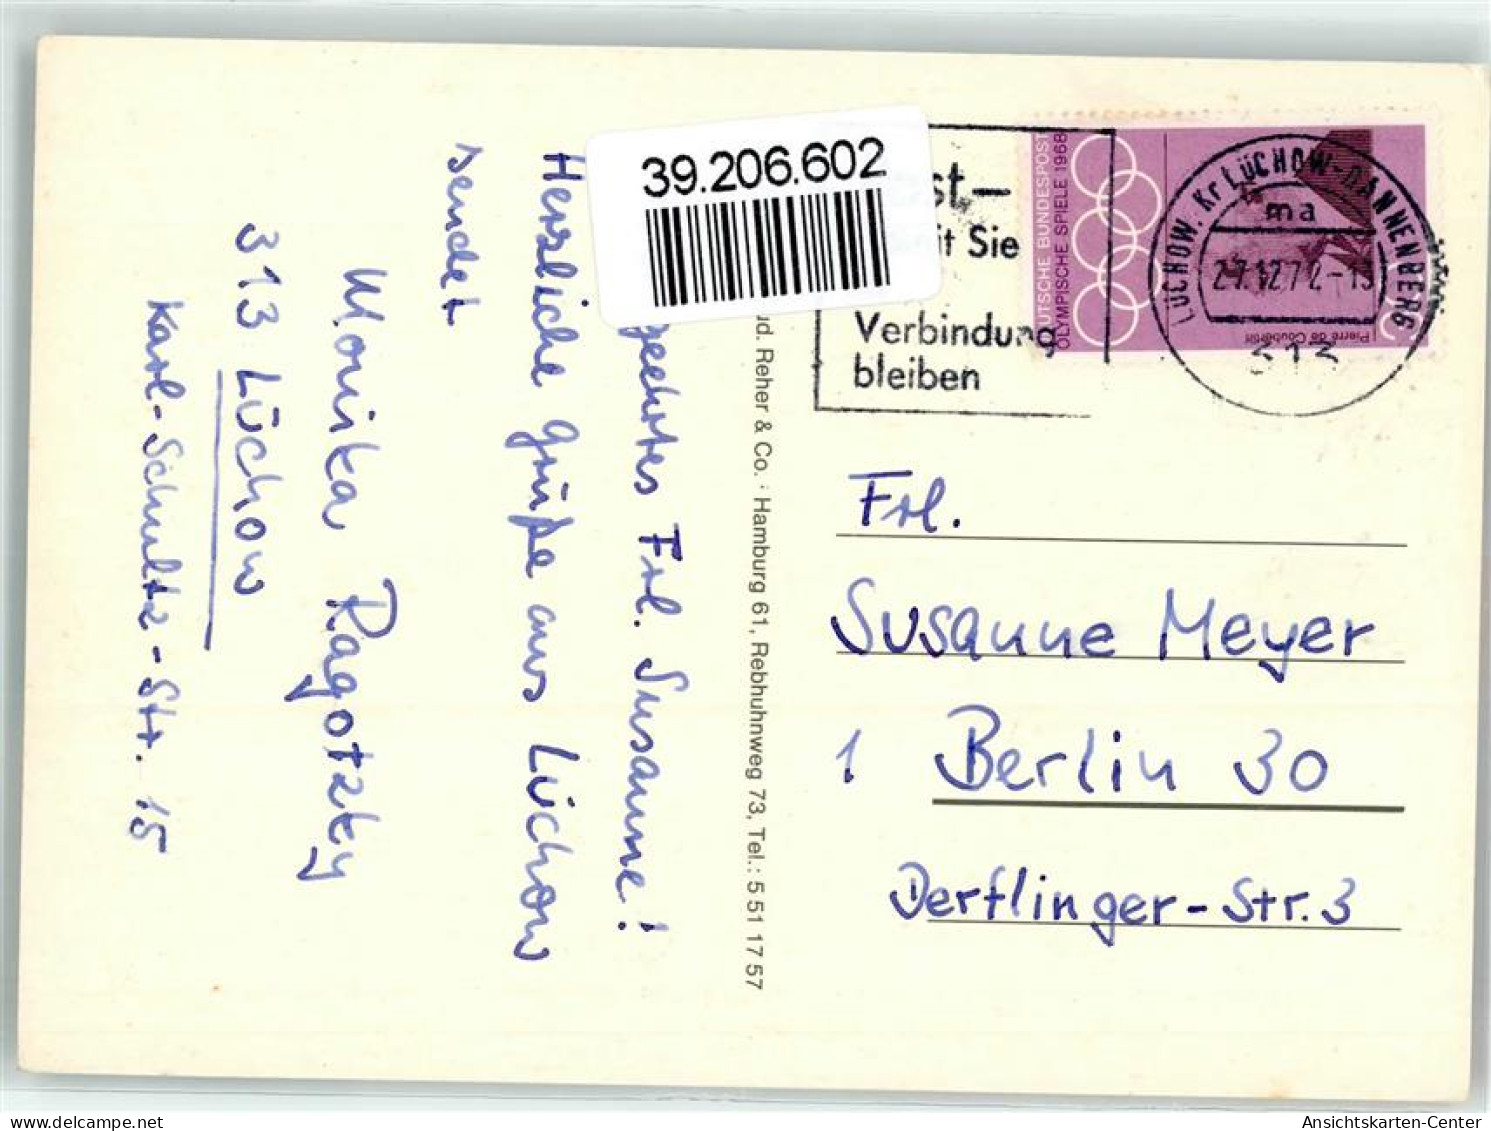 39.206.602
it Sie
Verbindung
bleiben
DEUTSCHE BUNDESPOST
OLYMPISCHE SPIELE 1968
Pierre de Coubertin
LÜCHOW. Kr LÜCHOW-DANNENBERG
ma
27.12.72-15
313
geehrtes Frl. Susanne!
Herzliche Grüße aus Lüchow
sendet
Monika Ragotzky
313 Lüchow
Karl-Schultz-Str. 15
ud. Reher & Co. · Hamburg 61, Rebhuhnweg 73, Tel.: 5 51 17 57
Frl.
Susanne Meyer
1 Berlin 30
Derflinger-Str. 3
hippostcard.com
Ansichtskarten-Center